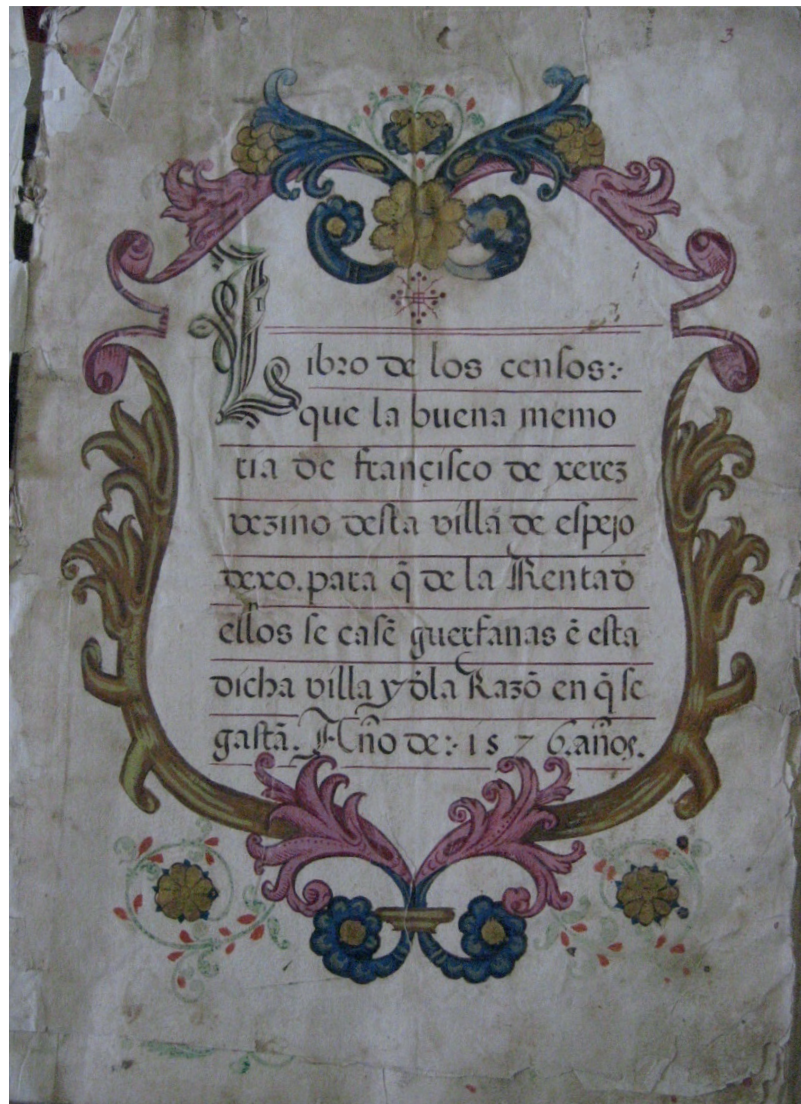 3
Libro de los censos:~
que la buena memo
ria de françisco de xerez
vezino desta villa de espejo
dexo. para q̃ de la Renta d̃
ellos se casẽ guerfanas ẽ esta
dicha villa y d̃la Razõ en q̃ se
gastã. Año de:~ 1576. años.